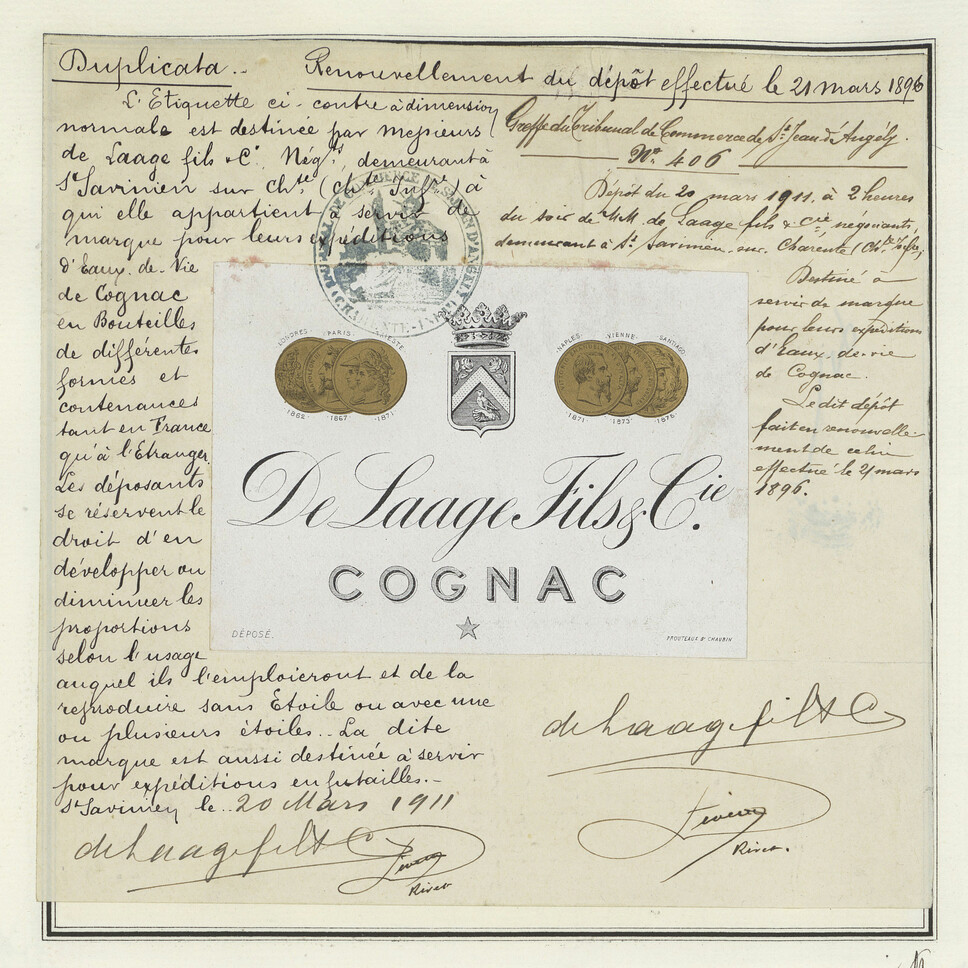 Duplicata.. Renouvellement du dépôt effectué le 21 mars 1896
L'Etiquette ci-contre à dimension
normale est destinée par Messieurs
de Laage fils & Cie Négts, demeurant à
St Savinien sur Chte (Chte Infre) à
qui elle appartient à servir de
marque pour leurs expéditions
d'Eaux-de-Vie
de Cognac
en Bouteilles
de différentes
formes et
contenances
tant en France
qu'à l'Etranger
Les déposants
se réservent le
droit d'en
développer ou
diminuer les
proportions
selon l'usage
auquel ils l'emploieront et de la
reproduire sans Etoile ou avec une
ou plusieurs étoiles.. La dite
marque est aussi destinée à servir
pour expéditions en futailles.-
St Savinien le.. 20 Mars 1911
de Laage fils & C
Rivet
Greffe du Tribunal de Commerce de St Jean d'Angély.
No 406
Dépôt du 20 mars 1911, à 2 heures
du soir de MM. de Laage fils & cie, négociants,
demeurant à St Savinien-sur-Charente (Chte Infre)
Destiné à
servir de marque
pour leurs expéditions
d'Eaux-de-vie
de Cognac.
Le dit dépôt
fait en renouvelle-
ment de celui
effectué le 21 mars
1896.
TRIBUNAL DE COMMERCE DE ST JEAN D'ANGELY
(CHARENTE-INFRE)
LONDRES PARIS TRIESTE
1862 1867 1871
NAPLES VIENNE SANTIAGO
1871 1873 1875
De Laage Fils & Cie.
COGNAC
DÉPOSÉ.
PROUTEAUX & CHAUBIN
de Laage fils & C
Rivet.